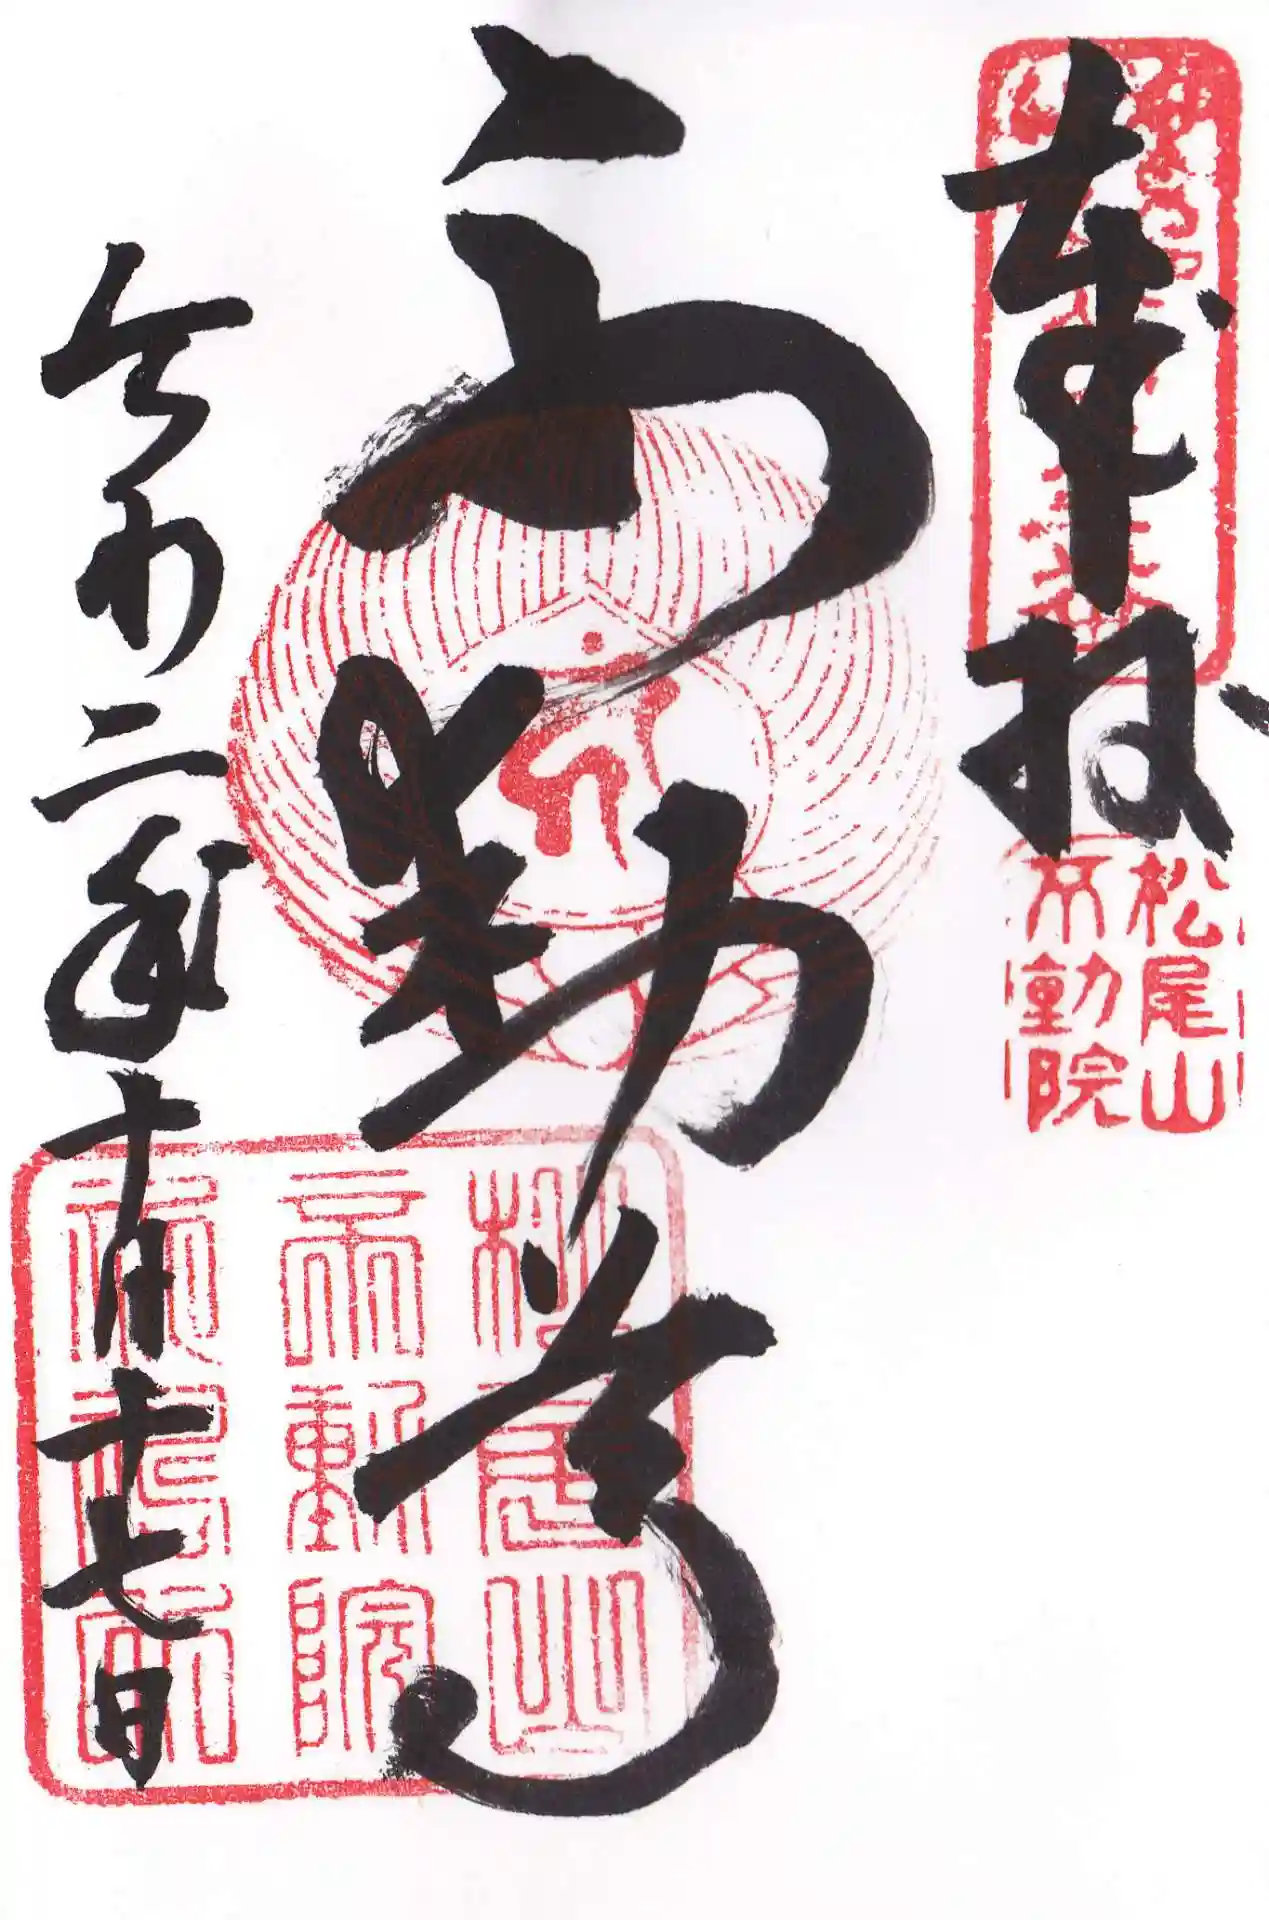 奉拝
松尾山
不動院
不動尊
松尾山
不動院
令和二年十月十七日